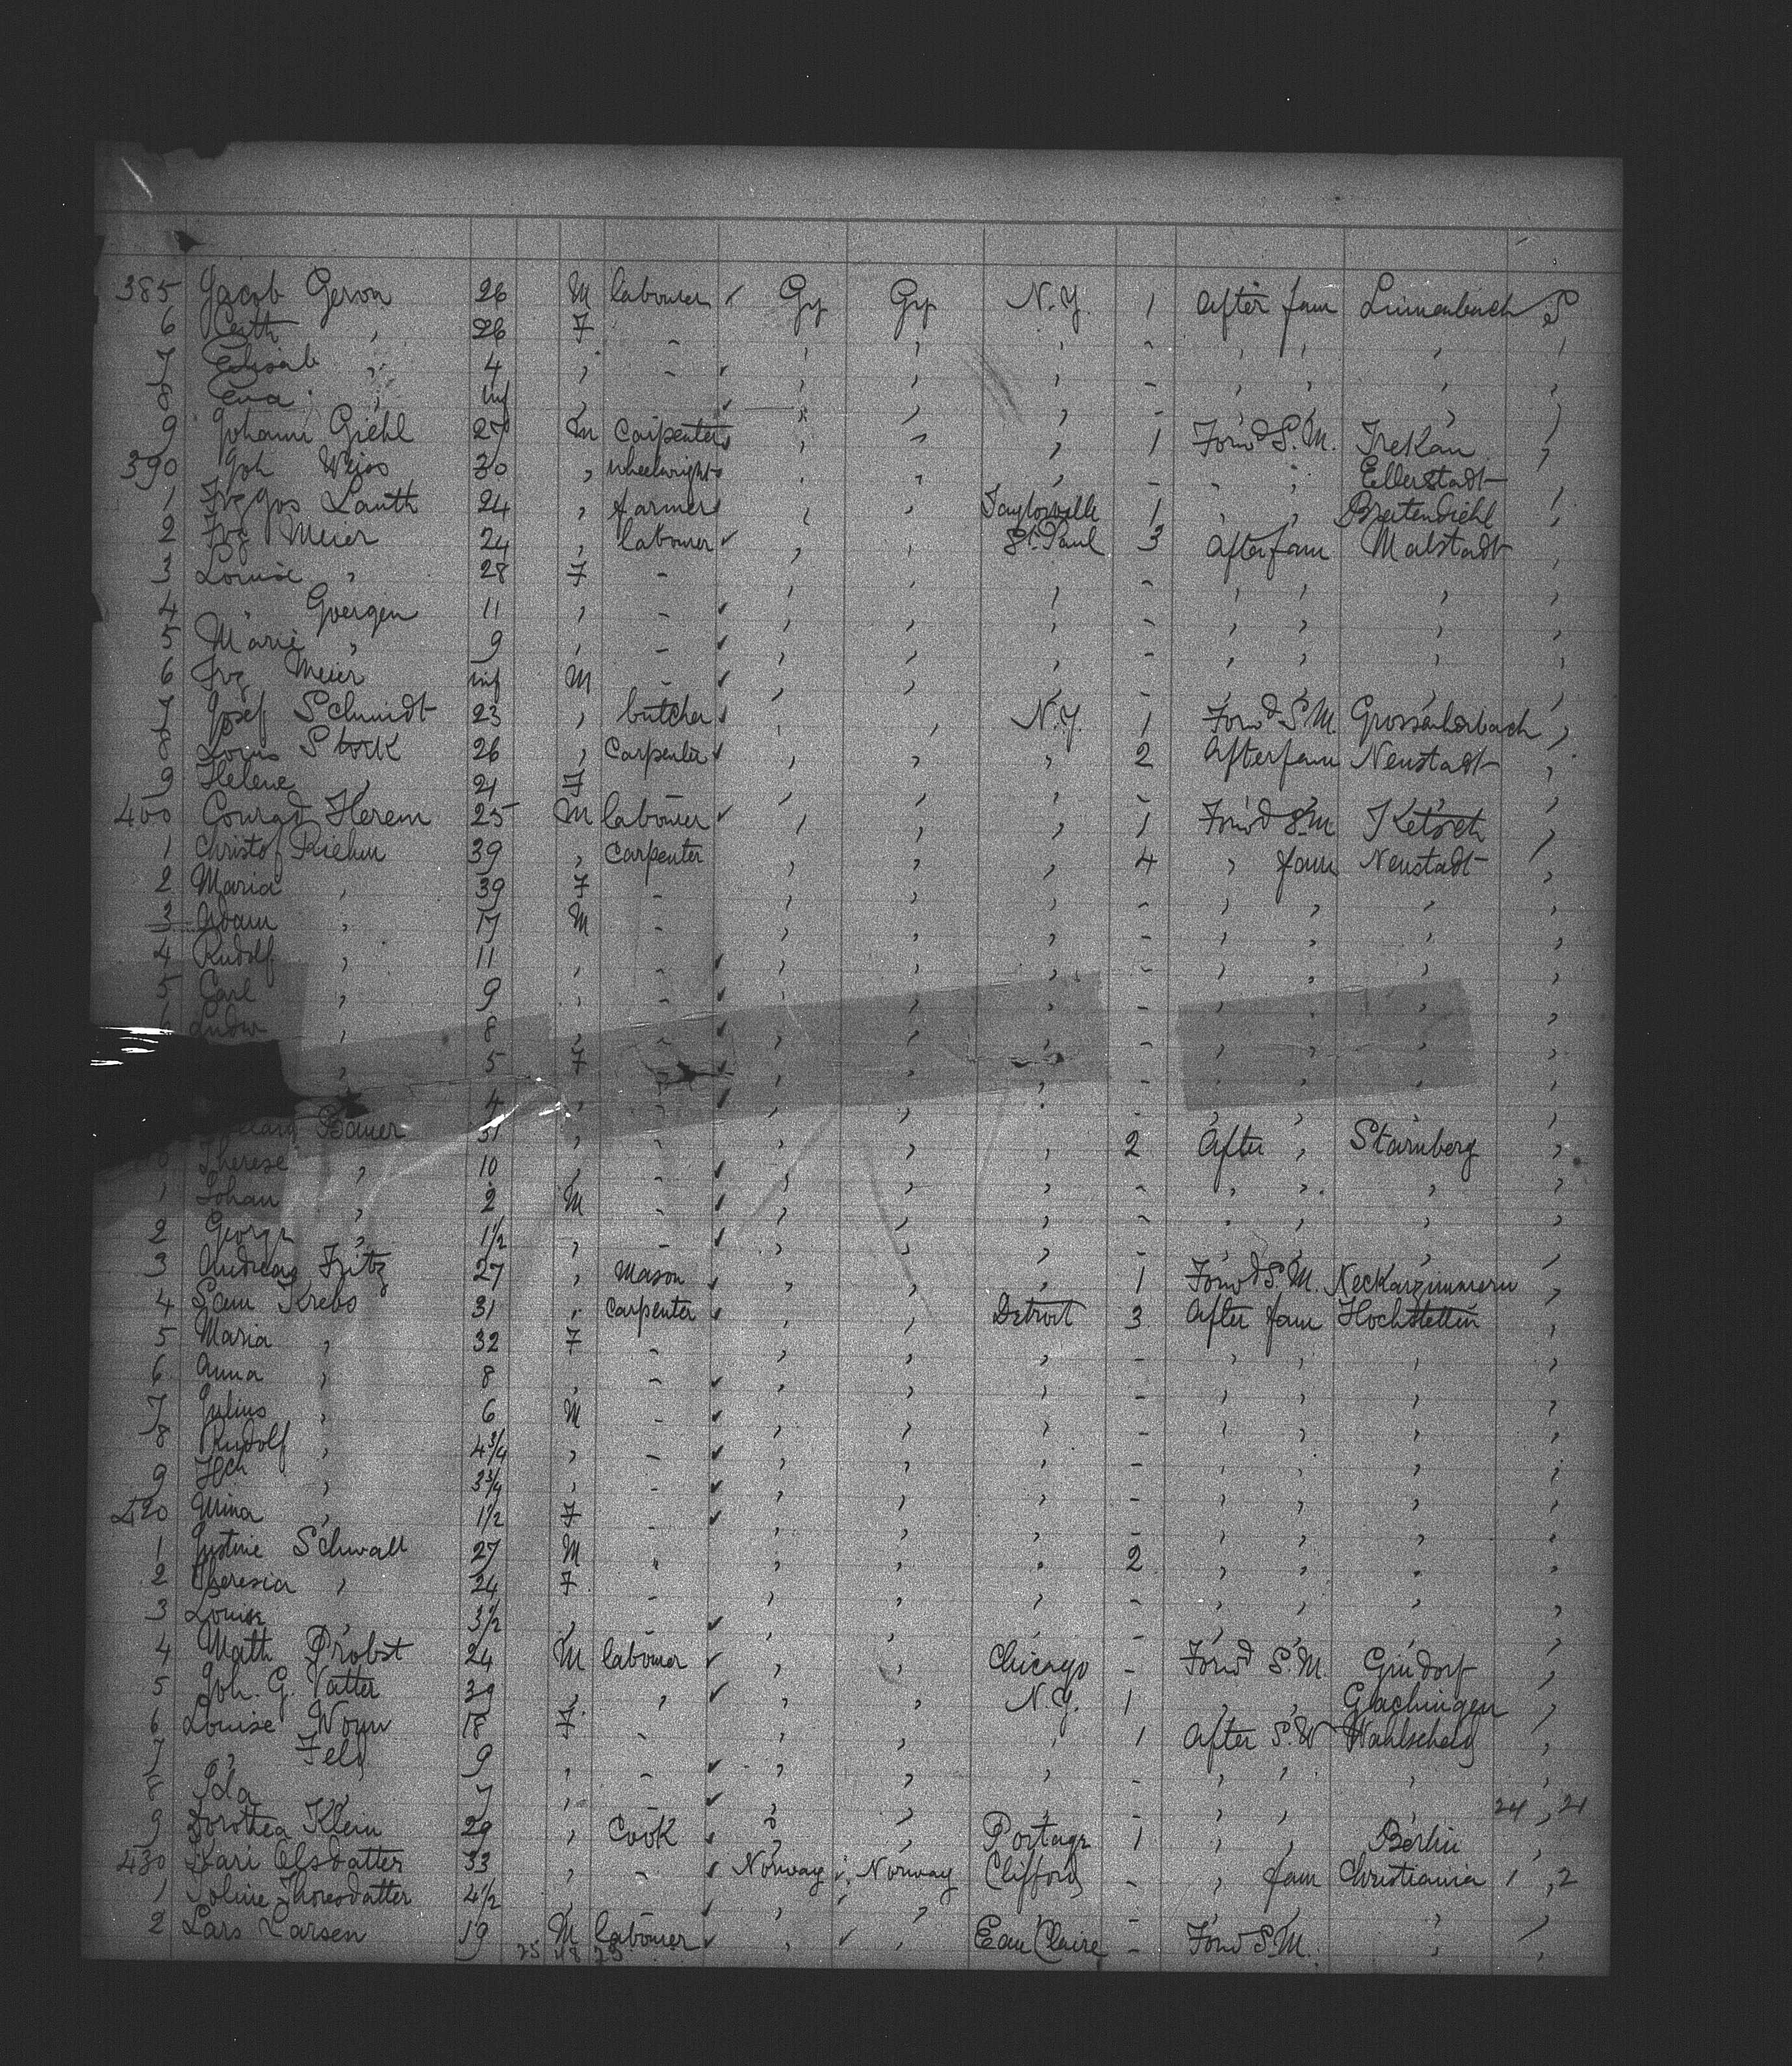 385 Jacob Geron 26 M labourer ✓ Gy Gy N.Y. 1 After fam Linnenbach S
6 Cath , 26 F - , , , - , , , ,
7 Elisab , 4 , - ✓ , , , - , , , ,
8 Eva , inf , ✓ , , , - , , , ,
9 Johann Giehl 27 M Carpenter , , , 1 Forwd S.M. ,
390 Joh Weiss 30 , wheelwright , , , - , , Ellerstadt ,
1 Lauth 24 , farmer , , Taylorville 1 , , Breitendiehl ,
2 Frz Meier 24 , labourer ✓ , , St. Paul 3 After fam Malstadt ,
3 Louise , 28 F - , , , - , , , ,
4 " Goergen 11 , - ✓ , , , - , , , ,
5 Marie , 9 , - ✓ , , , - , , , ,
6 Frz Meier inf M - ✓ , , , - , , , ,
7 Josef Schmidt 23 , butcher ✓ , , N.Y. 1 Forwd S.M. ,
8 Louis Stork 26 , Carpenter ✓ , , , 2 After fam Neustadt ,
9 Helene , 21 F - , , , - , , , ,
400 Conrad Herem 25 M labourer ✓ , , , 1 Forwd S.M. Ketsch ,
1 Christof Riehm 39 , Carpenter , , , 4 , fam Neustadt ,
2 Maria , 39 F - , , , - , , , ,
3 Adam , 17 M - , , , - , , , ,
4 Rudolf , 11 , - ✓ , , , - , , , ,
5 Carl , 9 , - ✓ , , , - , , , ,
6 Ludw , 8 , - ✓ , , , - , , , ,
, 5 F - ✓ , , , - , , , ,
, 4 , - ✓ , , , - , , , ,
Bauer 31 , - , , , 2 After , Starnberg ,
0 Therese , 10 , - ✓ , , , - , , , ,
1 Johan , 2 M - ✓ , , , - , , , ,
2 Georg , 1½ , - ✓ , , , - , , , ,
3 Andreas Fritz 27 , Mason ✓ , , , 1 Forwd S.M. Neckarzimmern ,
4 Sam Krebs 31 , Carpenter ✓ , , Detroit 3 After fam Hochstetten ,
5 Maria , 32 F - , , , - , , , ,
6 Anna , 8 , - ✓ , , , - , , , ,
7 Julius , 6 M - ✓ , , , - , , , ,
8 Rudolf , 4¾ , - ✓ , , , - , , , ,
9 Hch , 3¾ , - ✓ , , , - , , , ,
420 Mina , 1½ F - ✓ , , , - , , , ,
1 Justine Schwall 27 M " , , , 2 , , , ,
2 Theresia , 24 F - , , , - , , , ,
3 Louise , 3½ , - ✓ , , , - , , , ,
4 Math Probst 24 M labourer ✓ , , Chicago - Forwd S.M. ,
5 Joh. G. Vatter 39 , , ✓ , , N.Y. 1 , , ,
6 Louise 18 F - , , , 1 After Wahlscheid ,
7 , Feld 9 , - ✓ , , , - , , , ,
8 Ida , 7 , - ✓ , , , - , , , 24 , 21
9 Dorothea Klein 29 , Cook ✓ , , Portage 1 , , Berlin ,
430 Kari Olsdatter 33 , - ✓ Norway , Norway Clifford - , fam Christiania 1 , 2
1 Toline Thoresdatter 4½ , ✓ , ✓ , , - , , , ,
2 Lars Larsen 19 M labourer ✓ , ✓ , Eau Claire - Forwd S.M. , ,
25 48 25